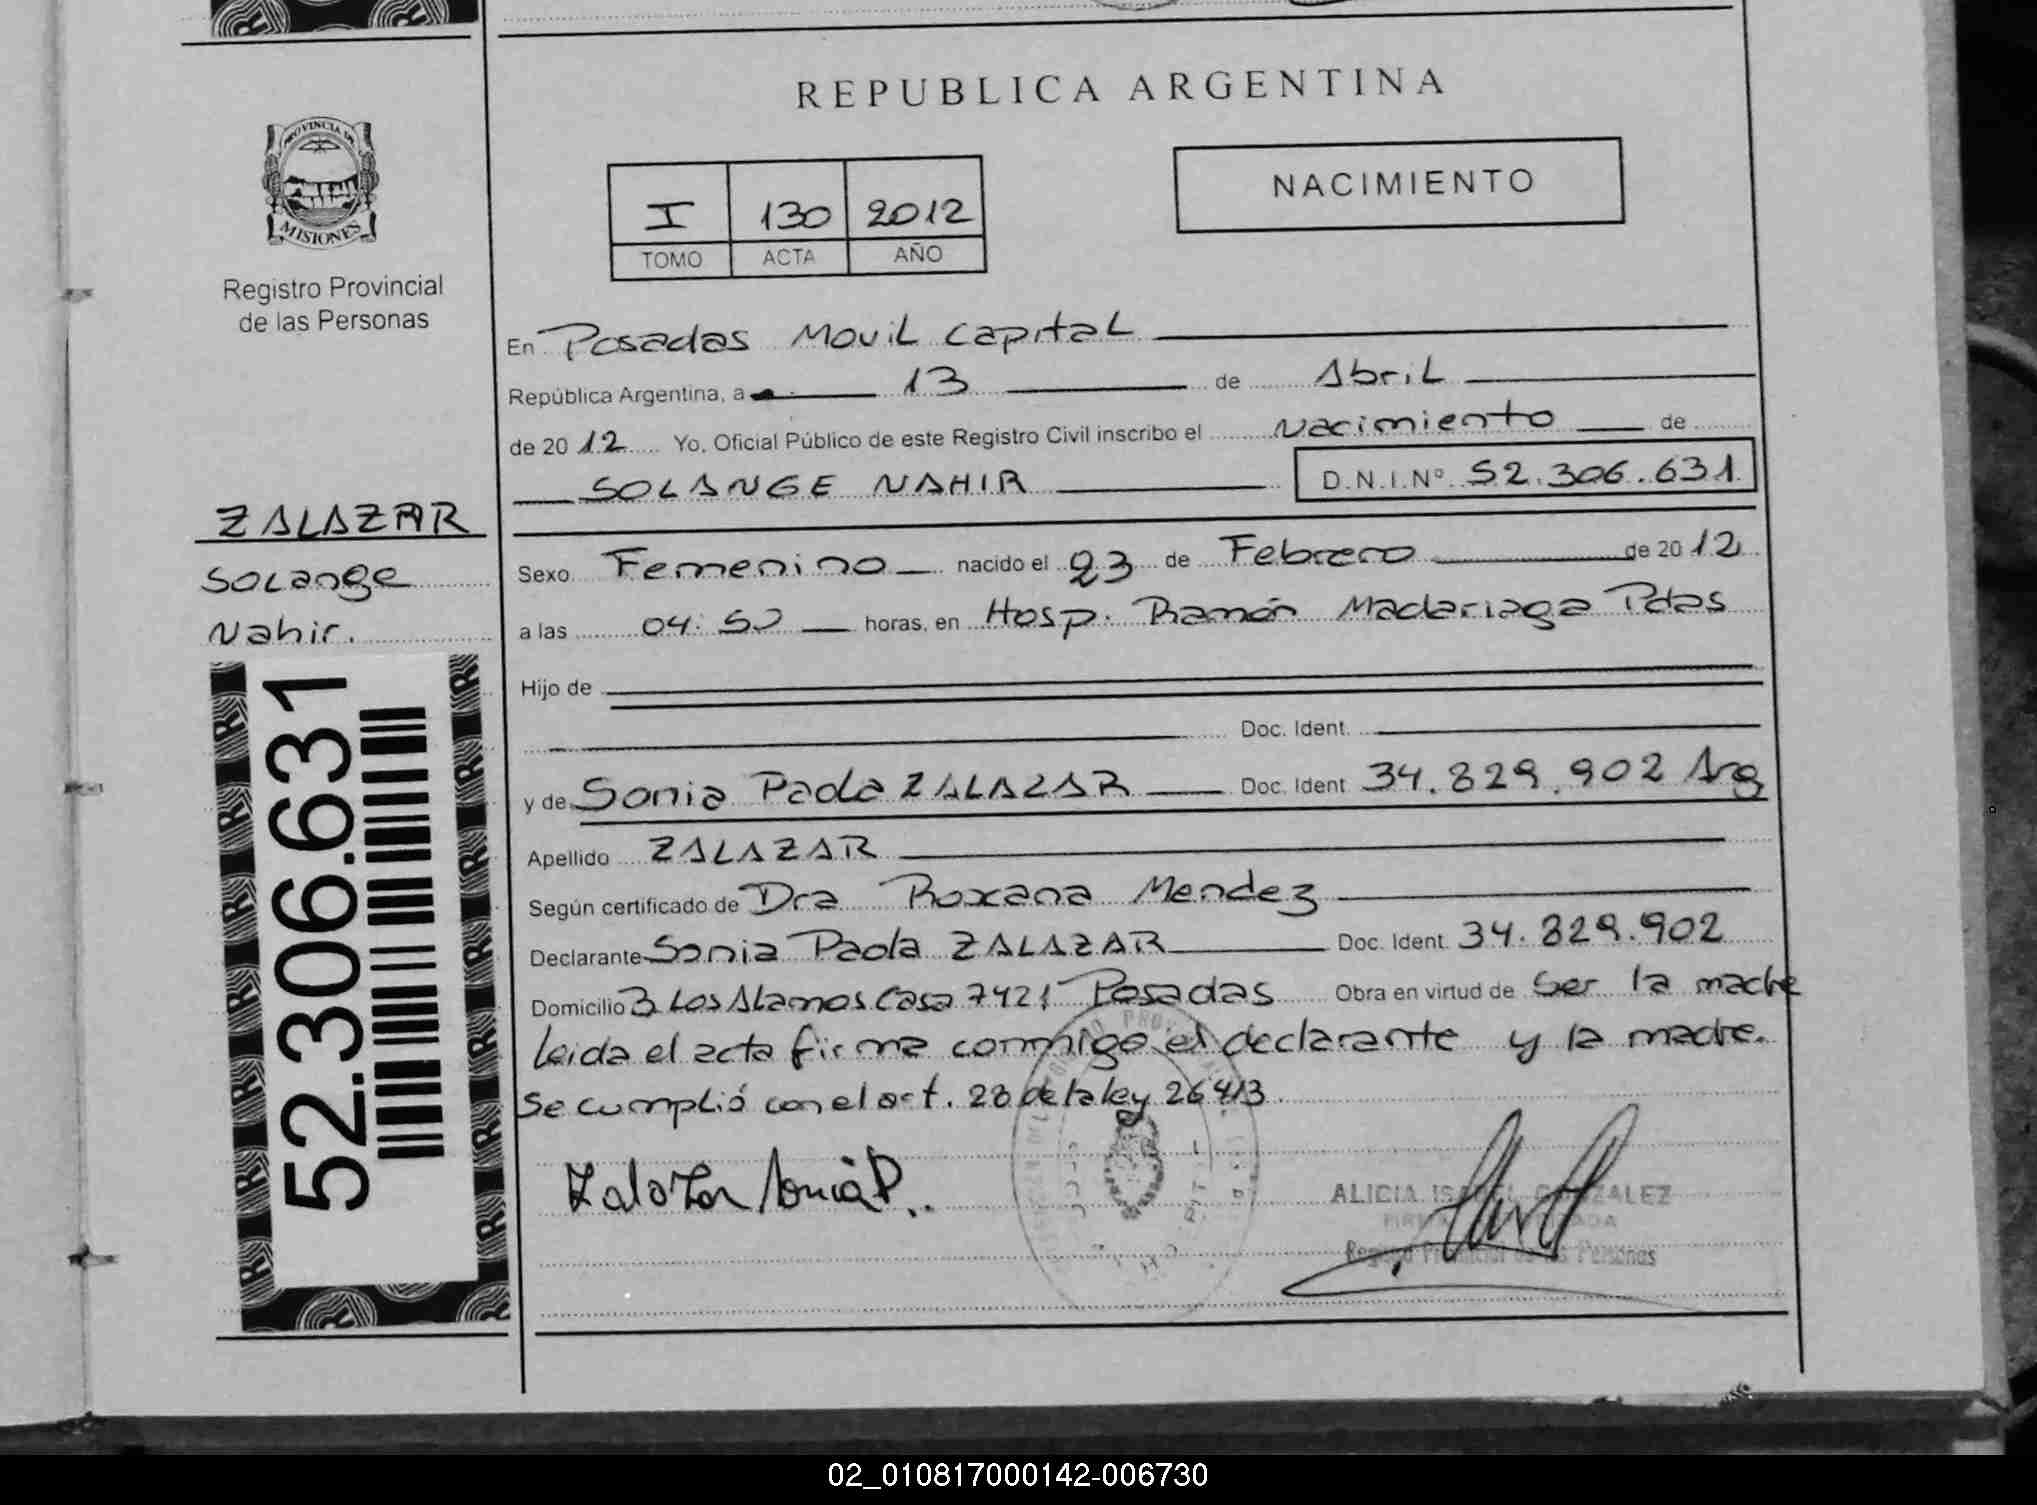 REPUBLICA ARGENTINA
PROVINCIA DE
MISIONES
Registro Provincial
de las Personas
NACIMIENTO
I 130 2012
TOMO ACTA AÑO
En Posadas Movil Capital
República Argentina, a 13 de Abril
de 2012 Yo, Oficial Público de este Registro Civil inscribo el Nacimiento de
SOLANGE NAHIR D.N.I.Nº 52.306.631
ZALAZAR
Solange
Nahir.
52.306.631
Sexo Femenino nacido el 23 de Febrero de 2012
a las 04:50 horas, en Hosp. Ramón Madariaga Pdas
Hijo de
Doc. Ident.
y de Sonia Paola ZALAZAR Doc. Ident 34.829.902 Arg
Apellido ZALAZAR
Según certificado de Dra Roxana Mendez
Declarante Sonia Paola ZALAZAR Doc. Ident. 34.829.902
Domicilio B Los Alamos Casa 7421 Posadas Obra en virtud de Ser la madre
Leida el acta firma conmigo el declarante y la madre.
Se cumplió con el art. 28 de la ley 26413
Zalazar Sonia P..
ALICIA ISABEL GONZALEZ
Registro Provincial de las Personas
02_010817000142-006730